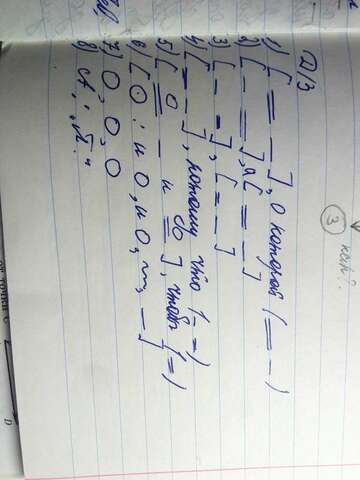 как?
3
Д/З
1) [ = — ], о которой ( = — )
2) [ — = ], а [ = — ]
3) [ — = ], [ = — ]
4) [ = — ], потому что ( — = )
5) [ O = — и O = ], чтобы ( = )
6) [ O : и O, и O, ~, — ]
7) O, O, O
8) А: „П."
от точки С
D